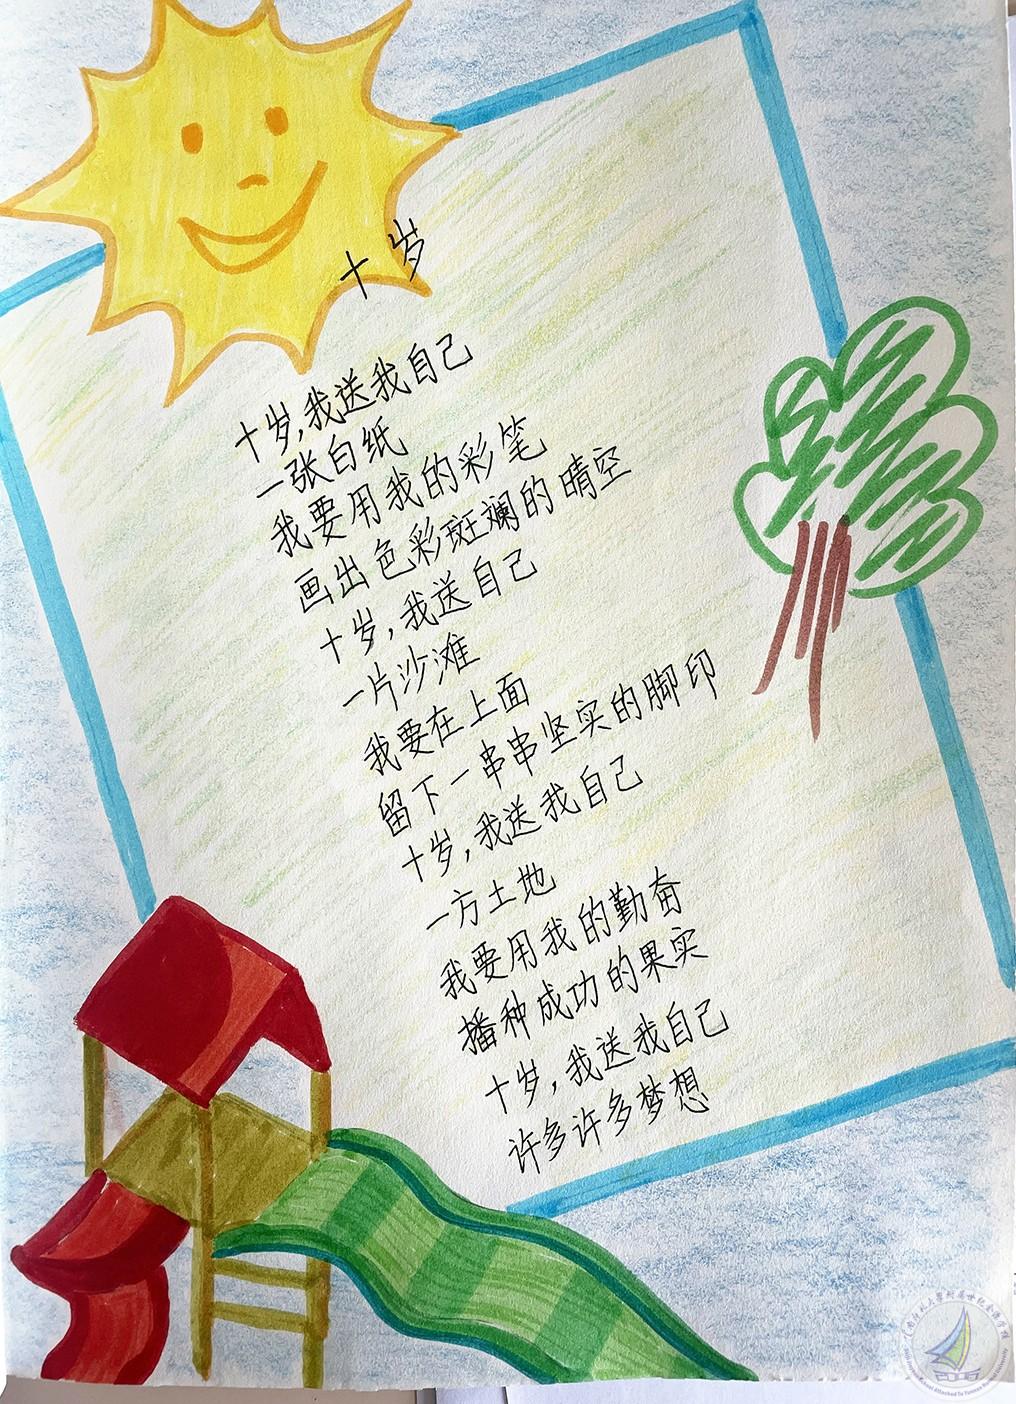 十岁
十岁,我送我自己
一张白纸
我要用我的彩笔
画出色彩斑斓的晴空
十岁,我送自己
一片沙滩
我要在上面
留下一串串坚实的脚印
十岁,我送我自己
一方土地
我要用我的勤奋
播种成功的果实
十岁,我送我自己
许多许多梦想